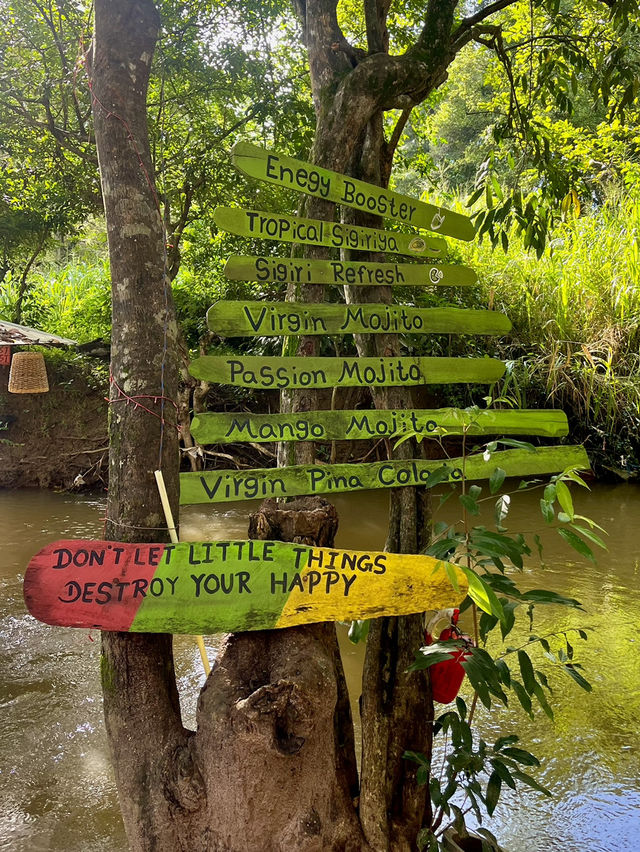 Enegy Booster
Tropical Sigiriya
Sigiri Refresh
Virgin Mojito
Passion Mojito
Mango Mojito
Virgin Pina Colada
DON'T LET LITTLE THINGS
DESTROY YOUR HAPPY